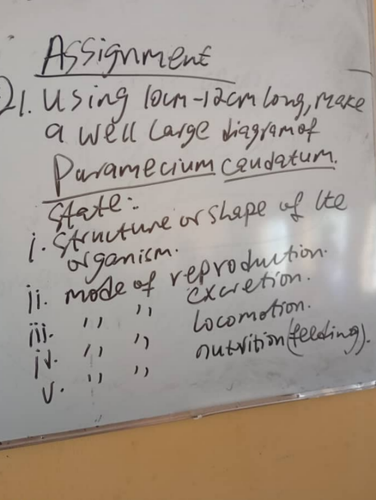 Assignment
Q1. Using 10cm-12cm long, make
a well large diagram of
Paramecium caudatum.
State:
i. Structure or shape of the
organism.
ii. mode of reproduction.
iii. " " excretion.
iv. " " locomotion.
v. " " nutrition (feeding).